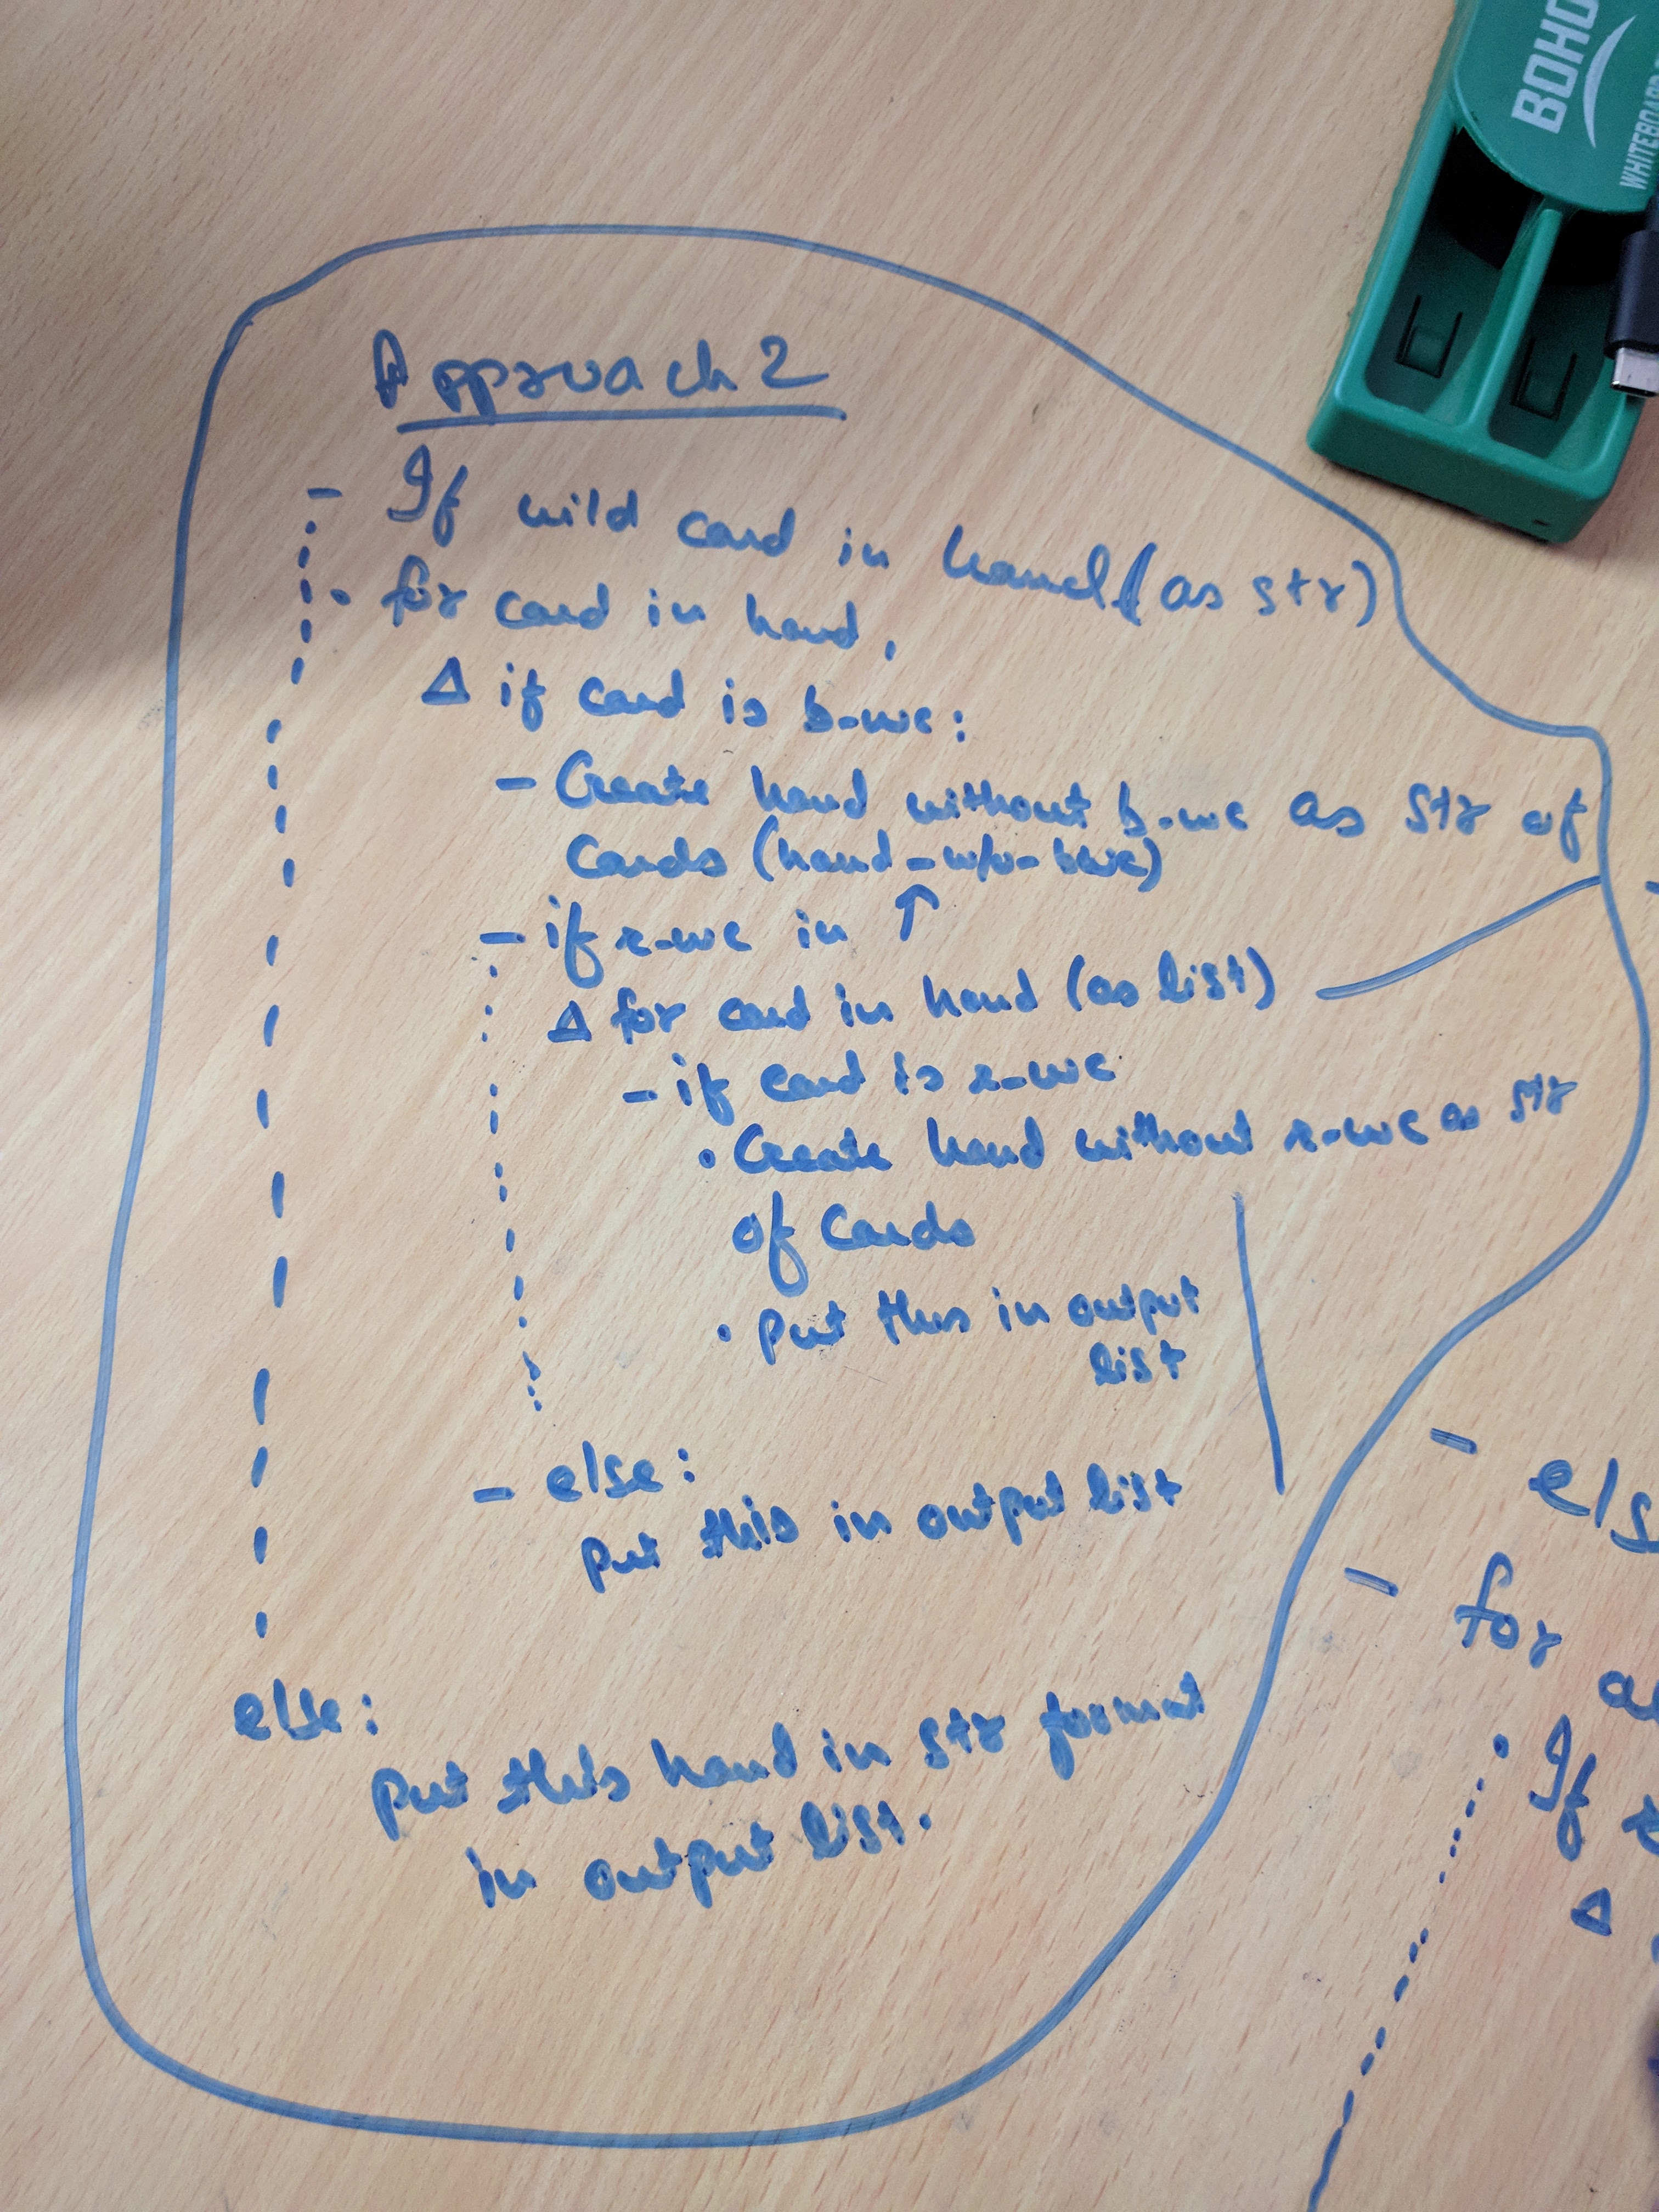 BOHO
WHITEBOARD
Approach 2
- If wild card in hand (as str)
• for card in hand,
Δ if card is b-wc:
- Create hand without b-wc as str of
Cards (hand-w/o-bwc)
- if r-wc in ↑
Δ for card in hand (as list)
- if card is r-wc
• Create hand without r-wc as str
of Cards
• put this in output
list
- else:
put this in output list
else:
put this hand in str format
in output list.
-
- els
- for
• If
Δ